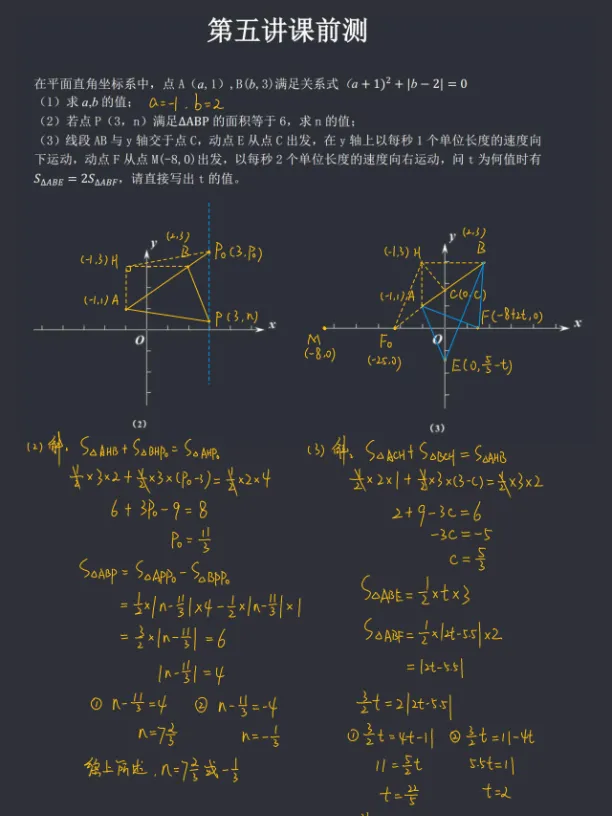 第五讲课前测
在平面直角坐标系中，点 A（a, 1）, B(b, 3)满足关系式（a + 1)² + |b − 2| = 0
（1）求 a,b 的值；a=-1 . b=2
（2）若点 P（3，n）满足ΔABP 的面积等于 6，求 n 的值；
（3）线段 AB 与 y 轴交于点 C，动点 E 从点 C 出发，在 y 轴上以每秒 1 个单位长度的速度向
下运动，动点 F 从点 M(-8,0)出发，以每秒 2 个单位长度的速度向右运动，问 t 为何值时有
S△ABE = 2S△ABF，请直接写出 t 的值。
y
(2,3)
B
(-1,3) H
P₀ (3,P₀)
(-1,1) A
P (3,n)
O
x
(2)
y
(2,3)
(-1,3) H
B
(-1,1) A
C(0,C)
F(-8+2t,0)
M
(-8,0)
F₀
(-2.5,0)
O
x
E(0, 5/3-t)
(3)
(2) 解: S△AHB + S△BHP₀ = S△AHP₀
1/2×3×2 + 1/2×3×(P₀-3) = 1/2×2×4
6 + 3P₀ - 9 = 8
P₀ = 11/3
S△ABP = S△APP₀ - S△BPP₀
= 1/2×|n-11/3|×4 - 1/2×|n-11/3|×1
= 3/2×|n-11/3| = 6
|n-11/3| = 4
① n-11/3=4 ② n-11/3=-4
n=7 2/3 n=-1/3
综上所述, n=7 2/3 或 -1/3
(3) 解: S△ACH + S△BCH = S△AHB
1/2×2×1 + 1/2×3×(3-C) = 1/2×3×2
2+9-3C=6
-3C=-5
C=5/3
S△ABE = 1/2×t×3
S△ABF = 1/2×|2t-5.5|×2
= |2t-5.5|
3/2t = 2|2t-5.5|
① 3/2t=4t-11 ② 3/2t=11-4t
11=5/2t 5.5t=11
t=22/5 t=2